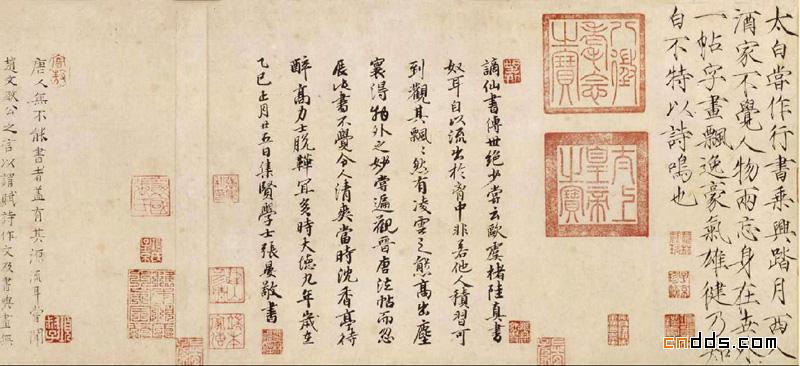 太白嘗作行書乘興踏月西入
酒家不覺人物兩忘身在世外
一帖字畫飄逸豪氣雄健乃知
白不特以詩鳴也
八徵耄念之寶
太上皇帝之寶
謫仙書傳世絕少嘗云歐虞褚陸真書
奴耳自以流出於胷中非若他人積習可
到觀其飄〻然有凌雲之態高出塵
寰得物外之妙嘗遍觀晉唐法帖而忽
展此書不覺令人清爽當時沈香亭待
醉高力士脫鞾宜矣時大德九年歲在
乙巳正月廿五日集賢學士張晏敬書
唐人無不能書者蓋有其源流耳嘗聞
趙文敏公之言以謂賦詩作文及書與畫無
cndds.com